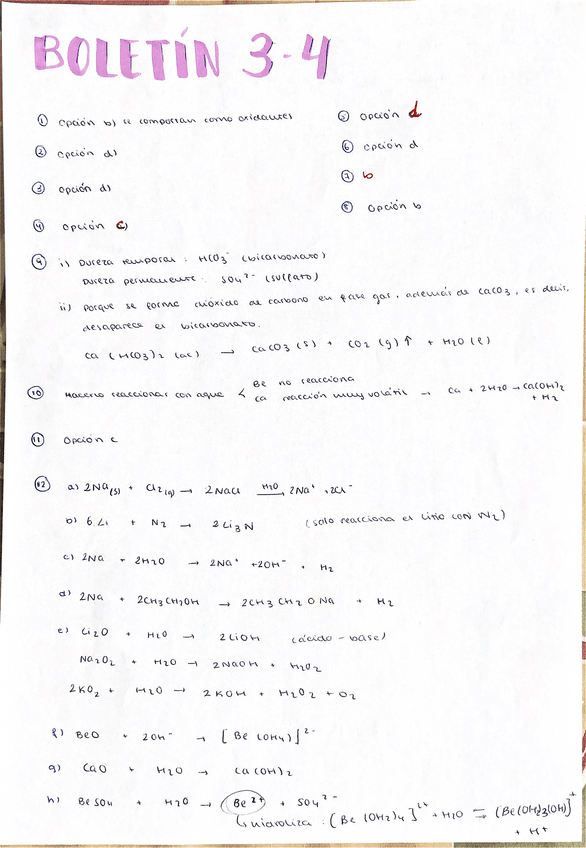 BOLETÍN 3-4
① Opción b) se comportan como oxidantes
② Opción d)
③ Opción d)
④ Opción c)
⑤ Opción d
⑥ Opción d
⑦ b
⑧ Opción b
⑨ i) Dureza temporal : HCO3⁻ (bicarbonato)
Dureza permanente : SO4²⁻ (sulfato)
ii) Porque se forma dióxido de carbono en fase gas, además de CaCO3, es decir,
desaparece el bicarbonato.
Ca (HCO3)2 (ac) → CaCO3 (s) + CO2 (g) ↑ + H2O (l)
⑩ Hacerlo reaccionar con agua < Be no reacciona
Ca reacción muy volátil → Ca + 2H2O → Ca(OH)2
+ H2
⑪ Opción c
⑫ a) 2Na(s) + Cl2(g) → 2NaCl H2O→ 2Na⁺ + 2Cl⁻
b) 6Li + N2 → 2Li3N (solo reacciona el Litio con N2)
c) 2Na + 2H2O → 2Na⁺ + 2OH⁻ + H2
d) 2Na + 2CH3CH2OH → 2CH3CH2ONa + H2
e) Li2O + H2O → 2LiOH (ácido-base)
Na2O2 + H2O → 2NaOH + H2O2
2KO2 + H2O → 2KOH + H2O2 + O2
f) BeO + 2OH⁻ → [Be(OH4)]²⁻
g) CaO + H2O → Ca(OH)2
h) BeSO4 + H2O → Be²⁺ + SO4²⁻
↳ hidroliza : [Be(OH2)4]²⁺ + H2O ⇌ (Be(OH2)3(OH)]⁺
+ H⁺